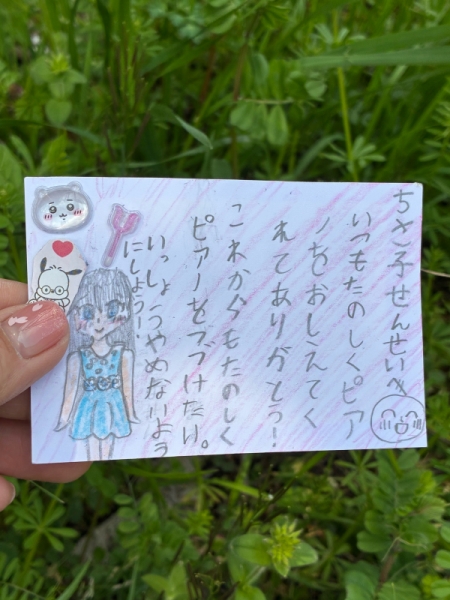 ちさ子せんせいへ
いつもたのしくピア
ノをおしえてく
れてありがとう!
これからもたのしく
ピアノをつづけたい。
いっしょうやめないよう
にしよう!